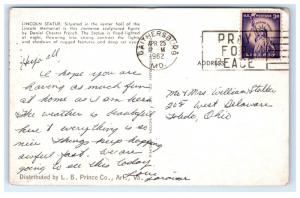 LINCOLN STATUE: Situated in the center hall of the
Lincoln Memorial is this immense sculptured figure
by Daniel Chester French. The Statue is flood-lighted
at night, throwing into strong contrasts the lights
and shadows of rugged features and deep set eyes.
Haya all,
I hope you are
having as much fun
at home as I am here.
The weather is beautiful
here & everything is so
nice. Things keep hopping
awful fast. We are
going to see this today
Love,
Distributed by L. B. Prince Co., Arl., Va.
GAITHERSBURG
APR 25
M
1962
MD.
PRAY
FOR
PEACE
ADDRESS
3¢
Mr & Mrs William Stoller
208 West Delaware
Toledo, Ohio